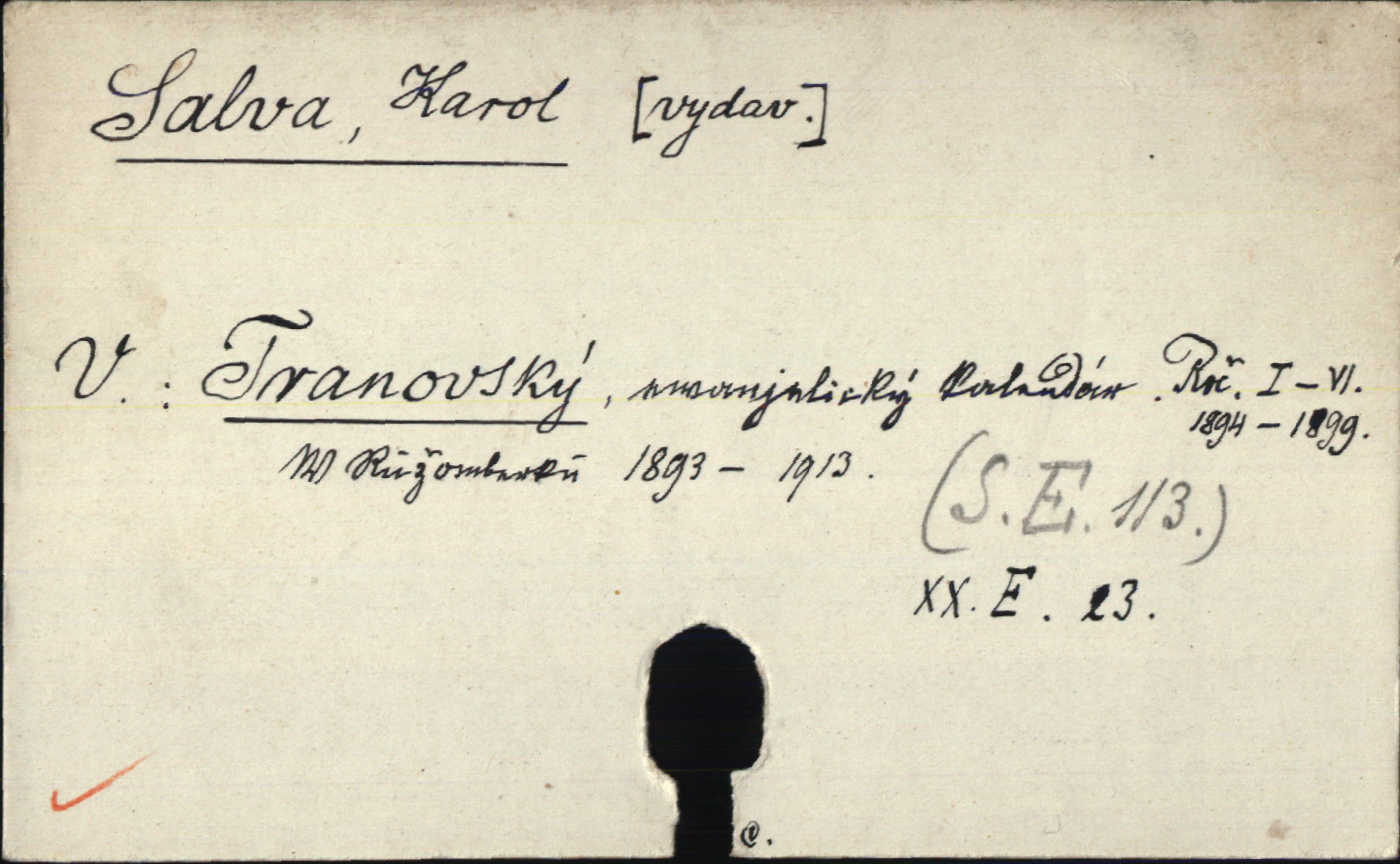 Salva, Karol [vydav.]
V.: Tranovský, ewanjelický kalendár. Roč. I – VI.
1894 – 1899.
W Růžomberku 1893 – 1913.
(S. E. 113.)
XX. E. 23.
@.